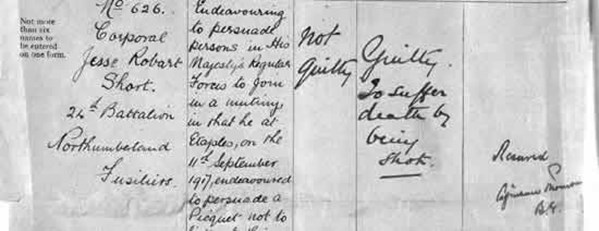 Not more
than six
names to
be entered
on one form.
No 626.
Corporal
Jesse Robart
Short.
24th Battalion
Northumberland
Fusiliers.
Endeavouring
to persuade
persons in His
Majesty's Regular
Forces to join
in a mutiny,
in that he at
Etaples, on the
11th September
1917, endeavoured
to persuade a
Picquet not to
Not
Guilty
Guilty.
To suffer
death by
being
shot.
Reserved